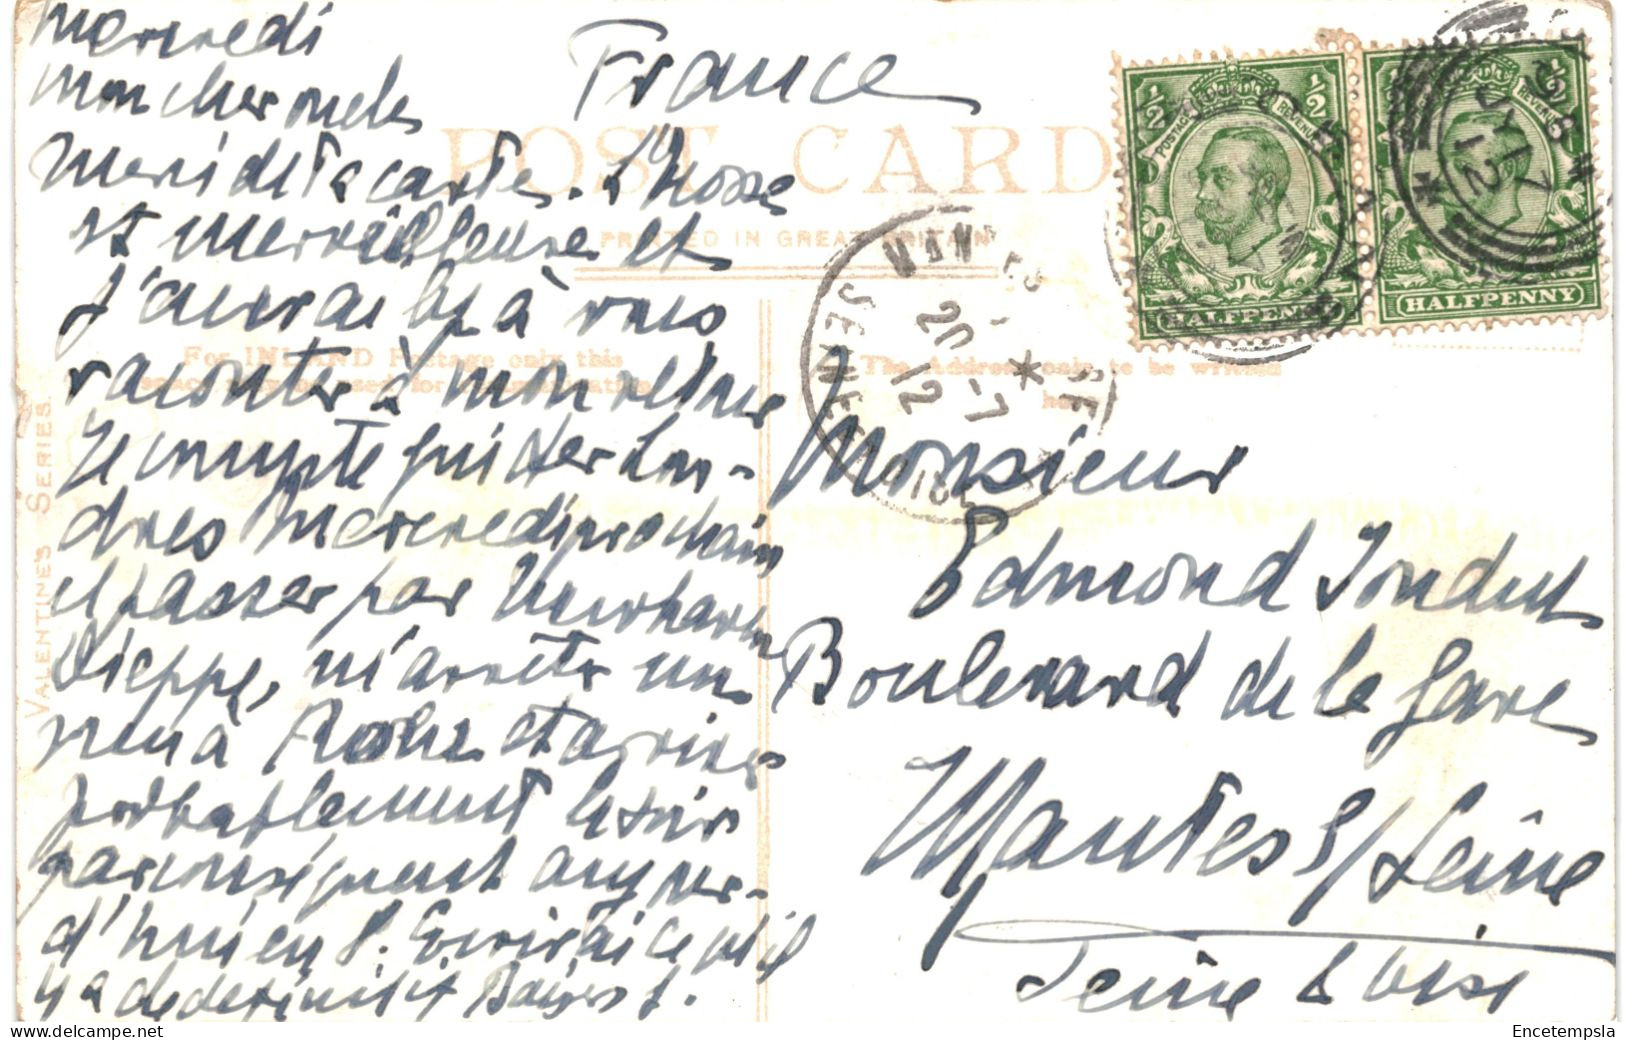 Mercredi
Mon cher oncle
Merci de ta carte. L'
est merveilleuse et
j'aurai bp à vous
raconter à mon retour
Je compte quitter Lon-
dres mercredi prochain
et passer par Newhaven
Dieppe, m'arrêter un
peu à et arriver
probablement le soir
par conséquent aujour-
d'hui en 8. Écrirai ce qu'il
y a de définitif Baisers
France
POST CARD
PRINTED IN GREAT BRITAIN
For INLAND Postage only this
space may be used for communication
The Address only to be written
here
VALENTINE'S SERIES.
POSTAGE REVENUE
½ ½
HALFPENNY
½
REVENUE
HALFPENNY
JY 17
12
MANTES
20 -7
12
SEINE
Monsieur
Edmond
Boulevard de la Gare
Mantes s/ Seine
Seine & Oise
Encetempsla